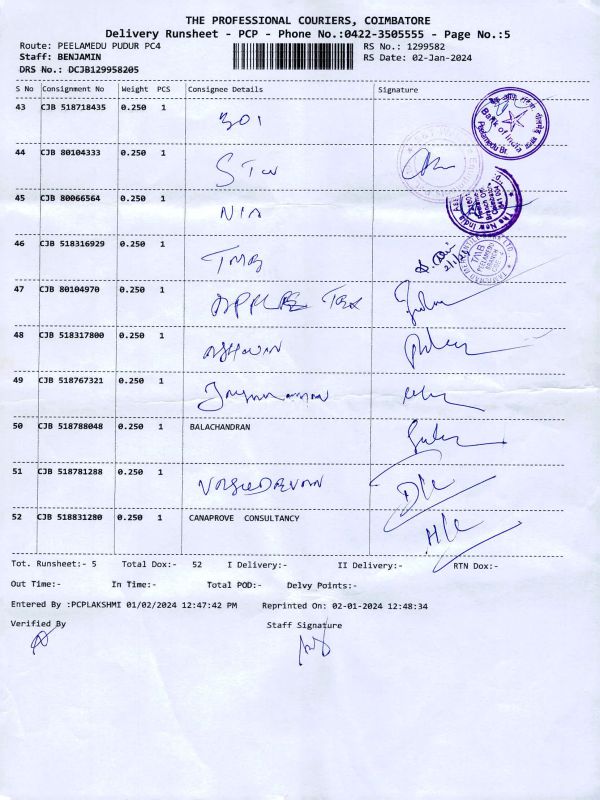 THE PROFESSIONAL COURIERS, COIMBATORE
Delivery Runsheet - PCP - Phone No.:0422-3505555 - Page No.:5
Route: PEELAMEDU PUDUR PC4 RS No.: 1299582
Staff: BENJAMIN RS Date: 02-Jan-2024
DRS No.: DCJB129958205
S No Consignment No Weight PCS Consignee Details Signature
43 CJB 518718435 0.250 1 BOI
Bank of India
Peelamedu Br.
44 CJB 80104333 0.250 1 STW
45 CJB 80066564 0.250 1 NIA
The New India
46 CJB 518316929 0.250 1 TMB
2/1/24
TMB
PEELAMEDU
47 CJB 80104970 0.250 1 APPLE TEX
48 CJB 518317800 0.250 1 ASHWIN
49 CJB 518767321 0.250 1
50 CJB 518788048 0.250 1 BALACHANDRAN
51 CJB 518781288 0.250 1 VASUDEVAN
D/L
52 CJB 518831280 0.250 1 CANAPROVE CONSULTANCY
H/L
Tot. Runsheet:- 5 Total Dox:- 52 I Delivery:- II Delivery:- RTN Dox:-
Out Time:- In Time:- Total POD:- Delvy Points:-
Entered By :PCPLAKSHMI 01/02/2024 12:47:42 PM Reprinted On: 02-01-2024 12:48:34
Verified By Staff Signature